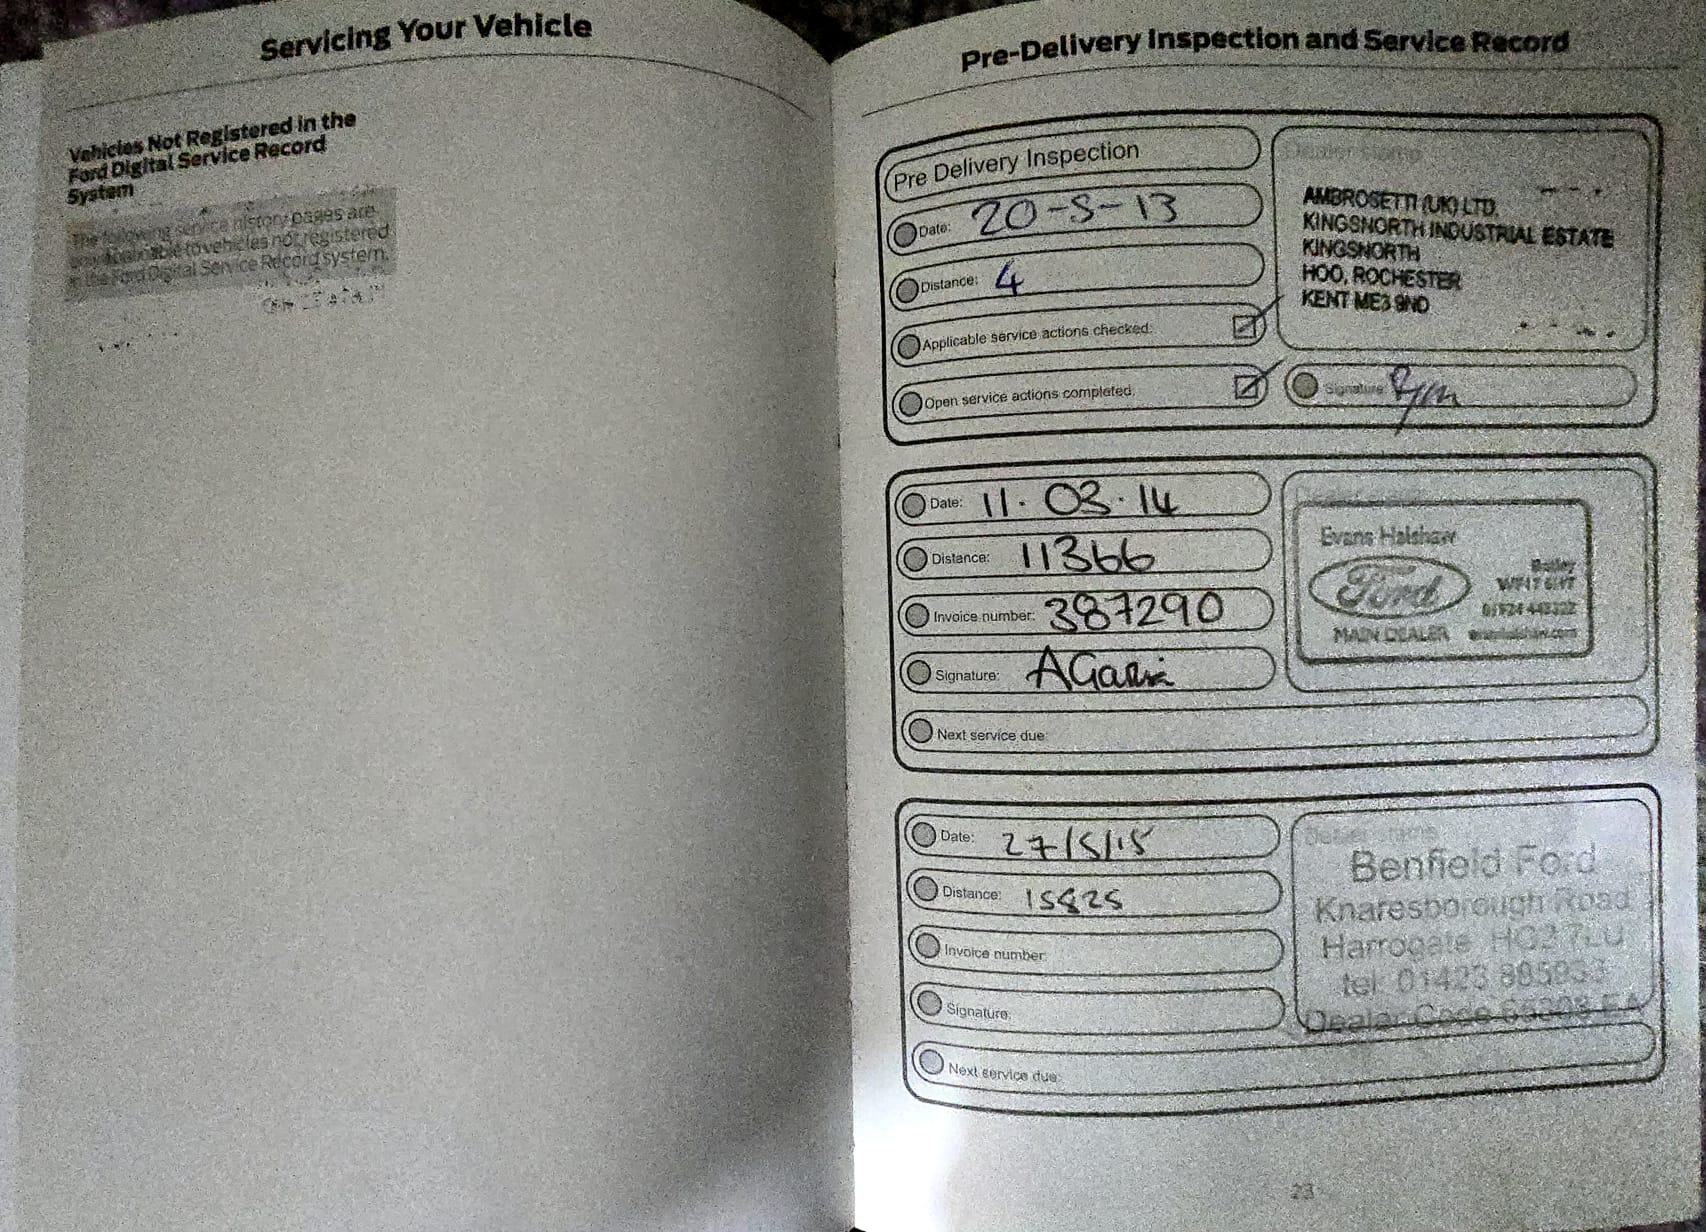 Servicing Your Vehicle
Vehicles Not Registered in the
Ford Digital Service Record
System
The following service history pages are
only applicable to vehicles not registered
in the Ford Digital Service Record system.
Pre-Delivery Inspection and Service Record
Pre Delivery Inspection
Date: 20-5-13
Distance: 4
Applicable service actions checked:
Open service actions completed:
Dealer stamp
AMBROSETTI (UK) LTD.
KINGSNORTH INDUSTRIAL ESTATE
KINGSNORTH
HOO, ROCHESTER
KENT ME3 9ND
Signature:
Date: 11.03.14
Distance: 11366
Invoice number: 387290
Signature:
Next service due:
Evans Halshaw
Ford
MAIN DEALER
Batley
01924 442222
evanshalshaw.com
Date: 27/5/15
Distance: 15825
Invoice number:
Signature:
Next service due:
Dealer stamp
Benfield Ford
Knaresborough Road
Harrogate HG2 7LU
tel: 01423
Dealer Code
23